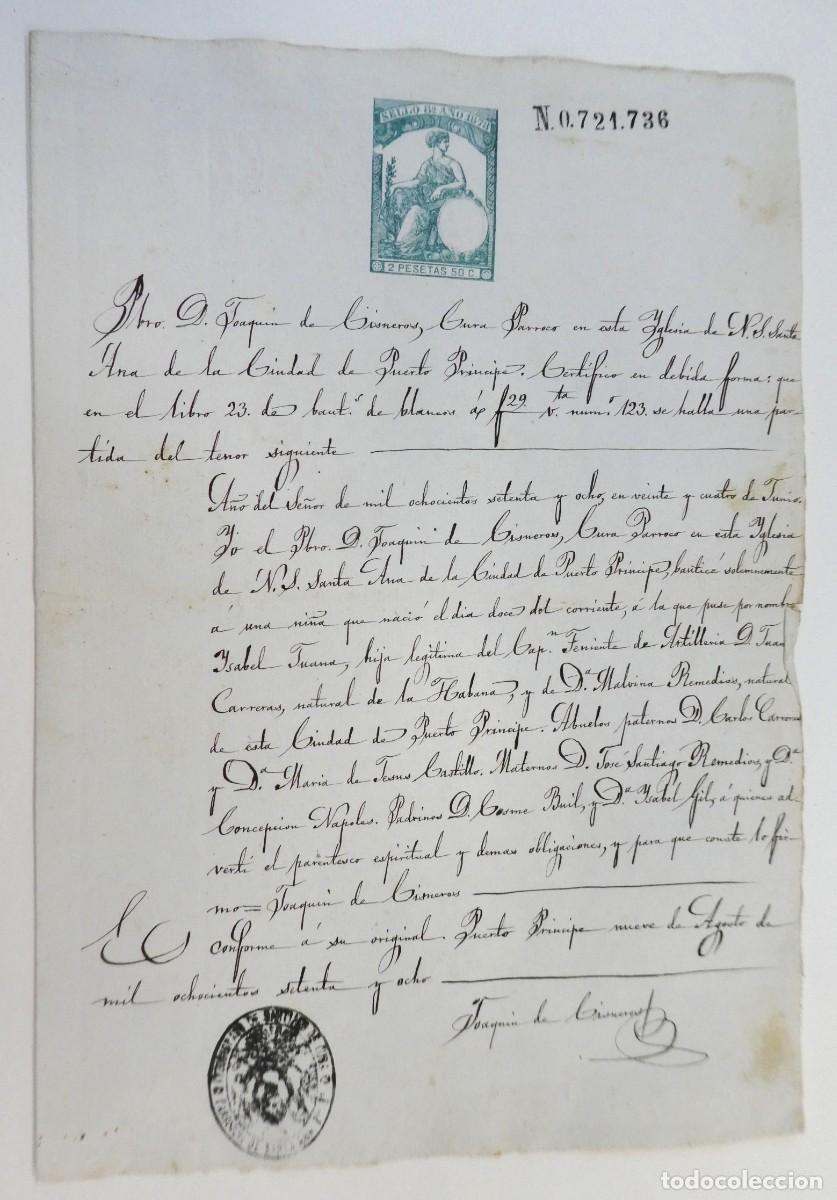 SELLO 8º AÑO 1878
N. 0.721.736
2 PESETAS 50 C.
Pbro. D. Joaquin de Cisneros, Cura Parroco en esta Yglesia de N. S. Santa
Ana de la Ciudad de Puerto Principe. Certifico en debida forma: que
en el libro 23. de baut.s de blancos á f 29. v.ta num.o 123. se halla una par-
tida del tenor siguiente
Año del Señor de mil ochocientos setenta y ocho, en veinte y cuatro de Junio.
Yo el Pbro. D. Joaquin de Cisneros, Cura Parroco en esta Yglesia
de N. S. Santa Ana de la Ciudad de Puerto Principe, bauticé solemnemente
á una niña que nació el dia doce del corriente, á la que puse por nombre
Ysabel Juana, hija legitima del Cap.n Teniente de Artilleria D. Juan
Carreras, natural de la Habana, y de D.a Malvina Remedios, natural
de esta Ciudad de Puerto Principe. Abuelos paternos D. Carlos Carreras
y D.a Maria de Jesus Castillo. Maternos D. José Santiago Remedios, y D.a
Concepcion Napoles. Padrinos D. Cosme Buil, y D.a Ysabel Gil, á quienes ad-
vertí el parentesco espiritual y demas obligaciones, y para que conste lo fir-
mo = Joaquin de Cisneros
Es conforme á su original. Puerto Principe nueve de Agosto de
mil ochocientos setenta y ocho
Joaquin de Cisneros
todocoleccion